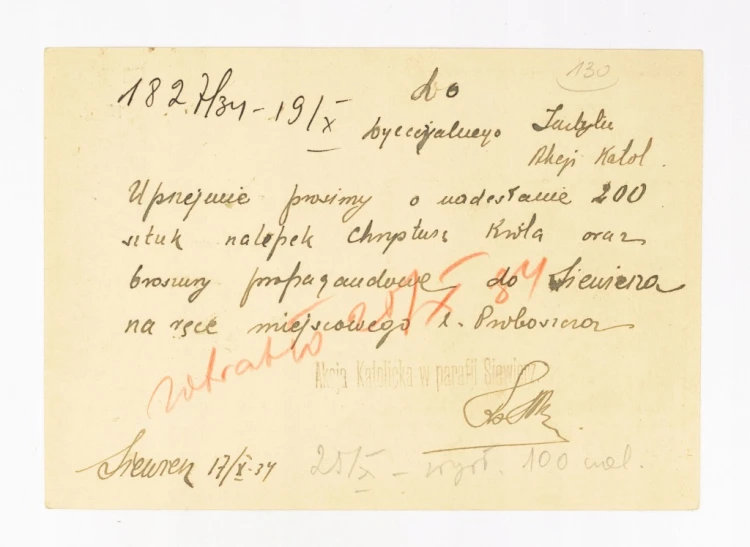 130
1827/34 - 19/X
Do
Dyecezjalnego Instytutu
Akcji Katol.
Uprzejmie prosimy o nadesłanie 200
sztuk nalepek Chrystusa Króla oraz
broszury propagandowe do Siewierza
na ręce miejscowego X. Proboszcza
25/X 34
Akcja Katolicka w parafii Siewierz
Siewierz 17/X-34
25/X - wysł. 100 nal.